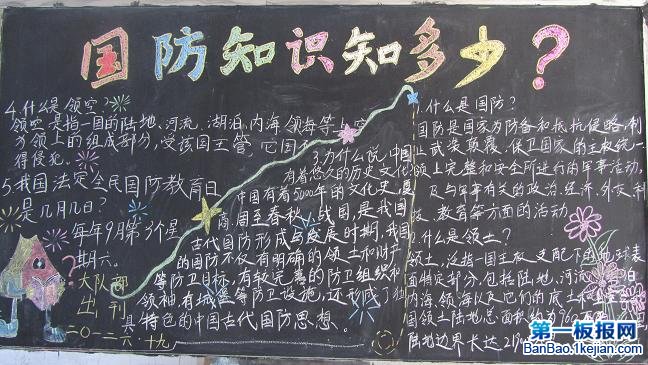 国防知识知多少?
1.什么是国防?
国防是国家为防备和抵抗侵略,制
止武装颠覆,保卫国家的主权统一
领土完整和安全所进行的军事活动,
及与军事有关的政治、经济、外交、科
技、教育等方面的活动。
2.什么是领土?
领土,泛指一国主权支配下的地球表
面特定部分,包括陆地、河流
内海、领海以及它们的底土和
国领土陆地总面积约为960
陆地边界长达
3.为什么说,中国
有着悠久的历史文化
中国有着5000年的文化史,夏
商、周至春秋、战国,是我国
古代国防形成与发展时期,我国
的国防不仅有明确的领土和财产
等防卫目标,有较完善的防卫组织和
领袖,有城堡等防卫设施,还形成了
具特色的中国古代国防思想。
4.什么是领空?
领空是指一国的陆地、河流、湖泊、内海、领海等上空
为领土的组成部分,受该国主管,它国
得侵犯。
5我国法定全民国防教育日
是几月几日?
每年9月第3个星
期六。
大队部
出刊
二〇一二六·十九
第一板报网
BanBao.1kejian.com